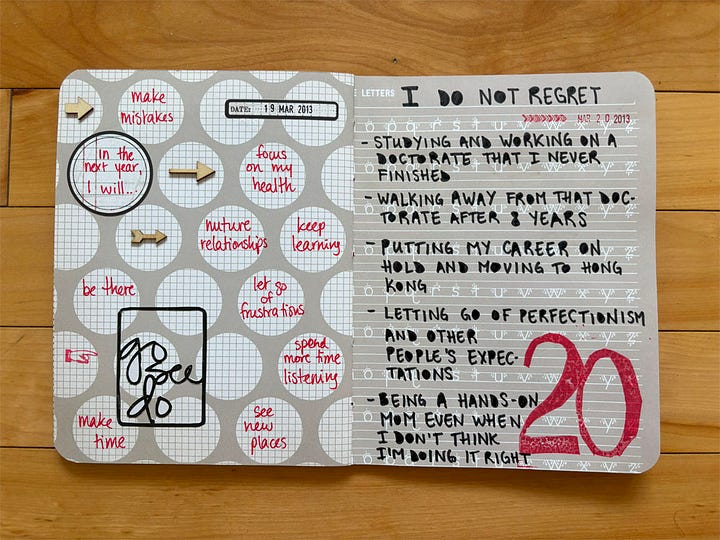 make
mistakes
DATE: 19 MAR 2013
In the
next year,
I will...
focus
on my
health
nuture
relationships
keep
learning
be there
let go
of
frustrations
go
see
do
spend
more time
listening
make
time
see
new
places
LETTERS
I DO NOT REGRET
MAR 20 2013
- STUDYING AND WORKING ON A
DOCTORATE THAT I NEVER
FINISHED
- WALKING AWAY FROM THAT DOC-
TORATE AFTER 8 YEARS
- PUTTING MY CAREER ON
HOLD AND MOVING TO HONG
KONG
- LETTING GO OF PERFECTIONISM
AND OTHER
PEOPLE'S EXPEC-
TATIONS
- BEING A HANDS-ON
MOM EVEN WHEN
I DON'T THINK
I'M DOING IT RIGHT
20